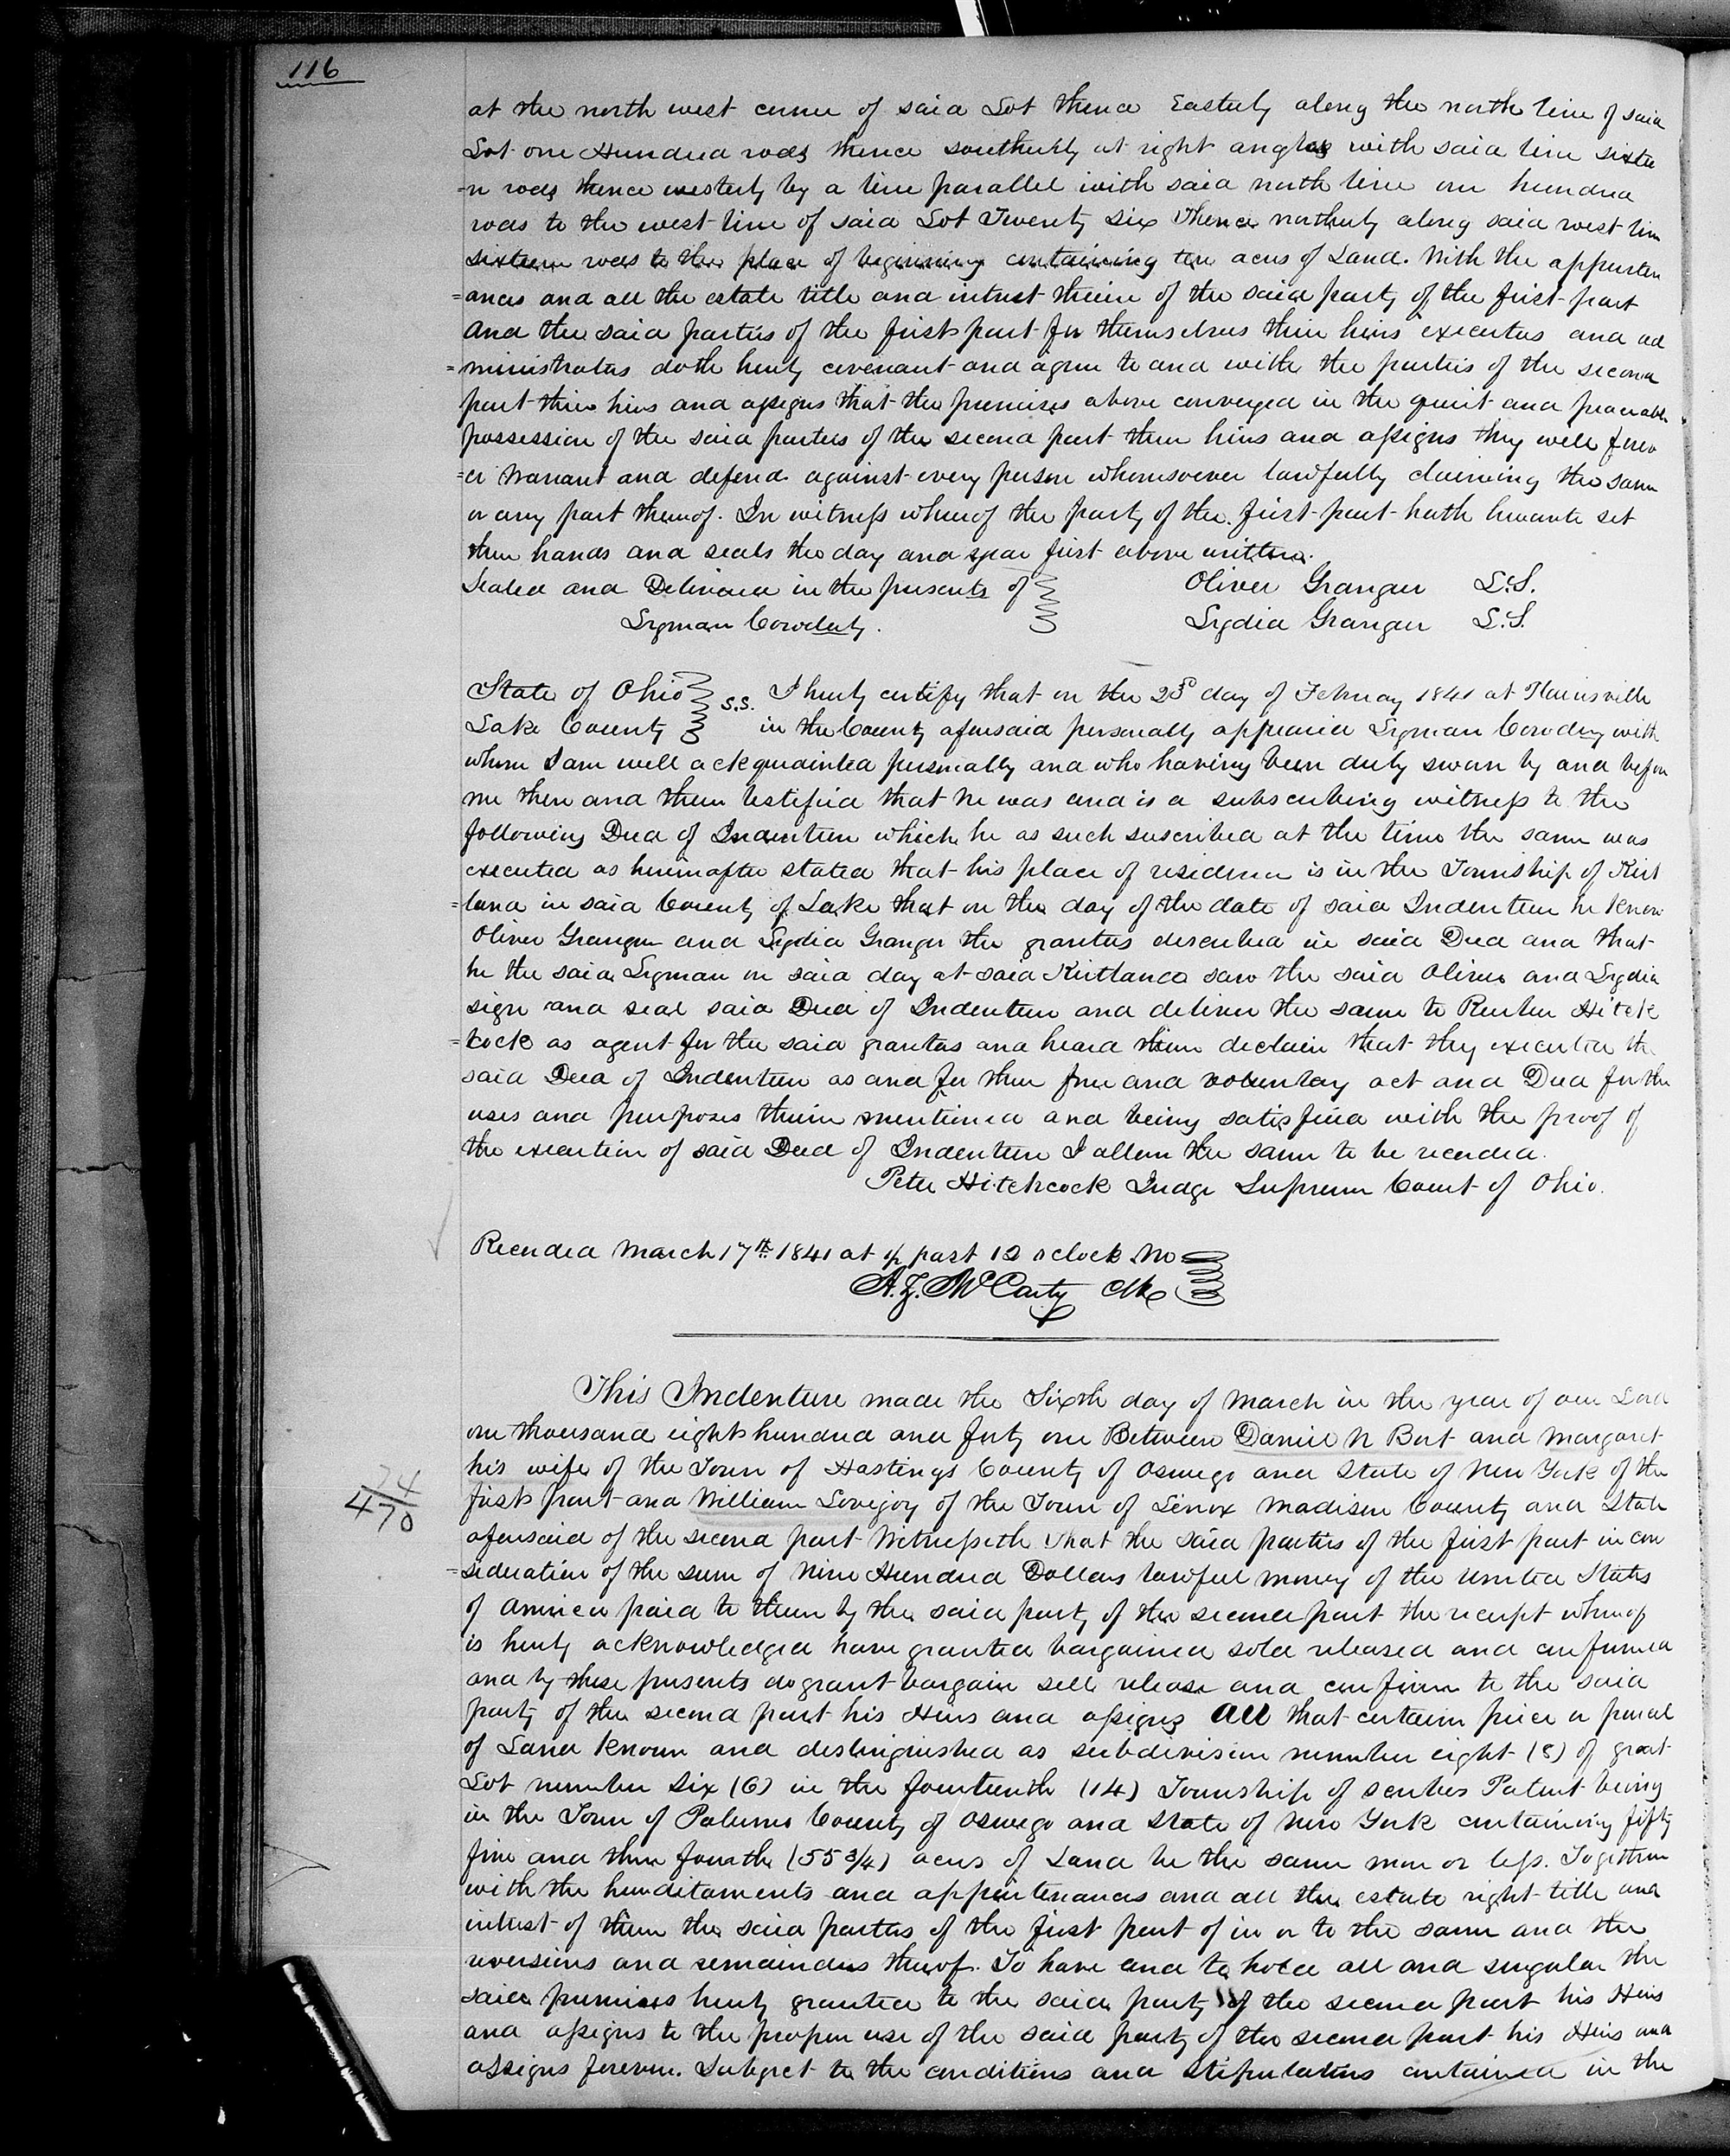 116
at the north west corner of said Lot thence Easterly along the north line of said
Lot one Hundred rods thence southerly at right angles with said line sixtee
=n rods thence westerly by a line parallel with said north line one hundred
rods to the west line of said Lot Twenty six Thence northerly along said west line
sixteen rods to the place of beginning containing ten acres of Land. With the appurten
=ances and all the estate title and intrest therein of the said party of the first part
And the said parties of the first part for themselves their heirs executors and ad
=ministrators doth herby covenant and agree to and with the parties of the second
part their heirs and assigns that the premises above conveyed in the quiet and peaceable
possession of the said parties of the second part their heirs and assigns they will forev
=er Warrant and defend against every person whomsoever lawfully claiming the same
or any part thereof. In witness whereof the party of the first part hath hereunto set
their hands and seals the day and year first above written.
Sealed and Delivered in the presents of Oliver Granger L.S.
Lyman Cowdery. Lydia Granger L.S.
State of Ohio s.s. I herby certify that on the 23d day of February 1841 at Plainsville
Lake County in the County aforesaid personally appeared Lyman Cowdery with
whom I am well ackquainted personally and who having been duly sworn by and before
me then and there testified that he was and is a subscribing witness to the
following Deed of Indenture which he as such suscribed at the time the same was
executed as hereinafter stated that his place of residence is in the Township of Kirt
=land in said County of Lake that on the day of the date of said Indenture he knew
Oliver Granger and Lydia Granger the grantors described in said Deed and that
he the said Lyman on said day at said Kirtland saw the said Oliver and Lydia
sign and seal said Deed of Indenture and deliver the same to Reuben Hitch
=cock as agent for the said grantees and heard them declare that they executed the
said Deed of Indenture as and for their free and voluntary act and Deed for the
uses and purposes therein mentioned and being satisfied with the proof of
the execution of said Deed of Indenture I allow the same to be recorded.
Peter Hitchcock Judge Supreme Court of Ohio.
Recorded March 17th 1841 at ½ past 12 oclock M
McCarty Clk
This Indenture made the Sixth day of March in the year of our Lord
one thousand eight hundred and forty one Between Daniel N Burt and Margaret
his wife of the Town of Hastings County of Oswego and State of New York of the
first part and William Lovejoy of the Town of Lenox Madison County and State
aforesaid of the second part Witnesseth that the said parties of the first part in con
=sideration of the sum of Nine Hundred Dollars lawful money of the United States
of America paid to them by the said party of the second part the receipt whereof
is herby acknowledged have granted bargained sold released and confirmed
and by these presents do grant bargain sell release and confirm to the said
party of the second part his Heirs and assigns All that certain piece or parcel
of Land known and destinguished as subdivision number eight (8) of great
Lot number Six (6) in the fourteenth (14) Township of scribas Patent being
in the Town of Palermo County of Oswego and State of New York containing fifty
five and three fourths (55 3/4) acres of Land be the same more or less. Together
with the hereditaments and appurtenances and all the estate right title and
intrest of them the said parties of the first part of in or to the same and the
reversions and remainders thereof. To have and to hold all and singular the
said premises herby granted to the said party of the second part his Heirs
and assigns to the proper use of the said party of the second part his Heirs and
assigns forever. Subject to the conditions and stipulations contained in the
74
470